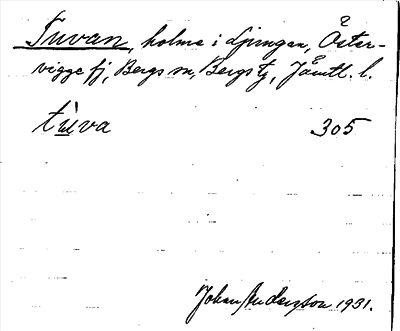 Tuvan, holme i Ljungan, Öster-
vigge fj, Bergs sn, Bergs tg, Jämtl. l.
tùva 305
Johan Anderzson 1931.